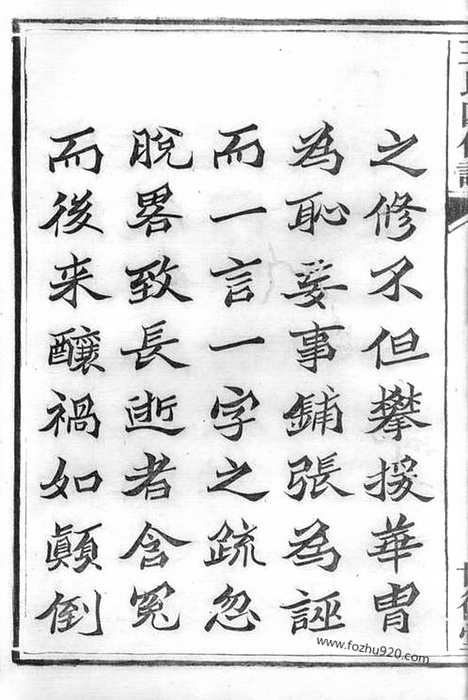 之修不但攀援華冑
為恥妄事鋪張為誣
而一言一字之疏忽
脫畧致長逝者含冤
而後来釀禍如顛倒
www.fozhu920.com